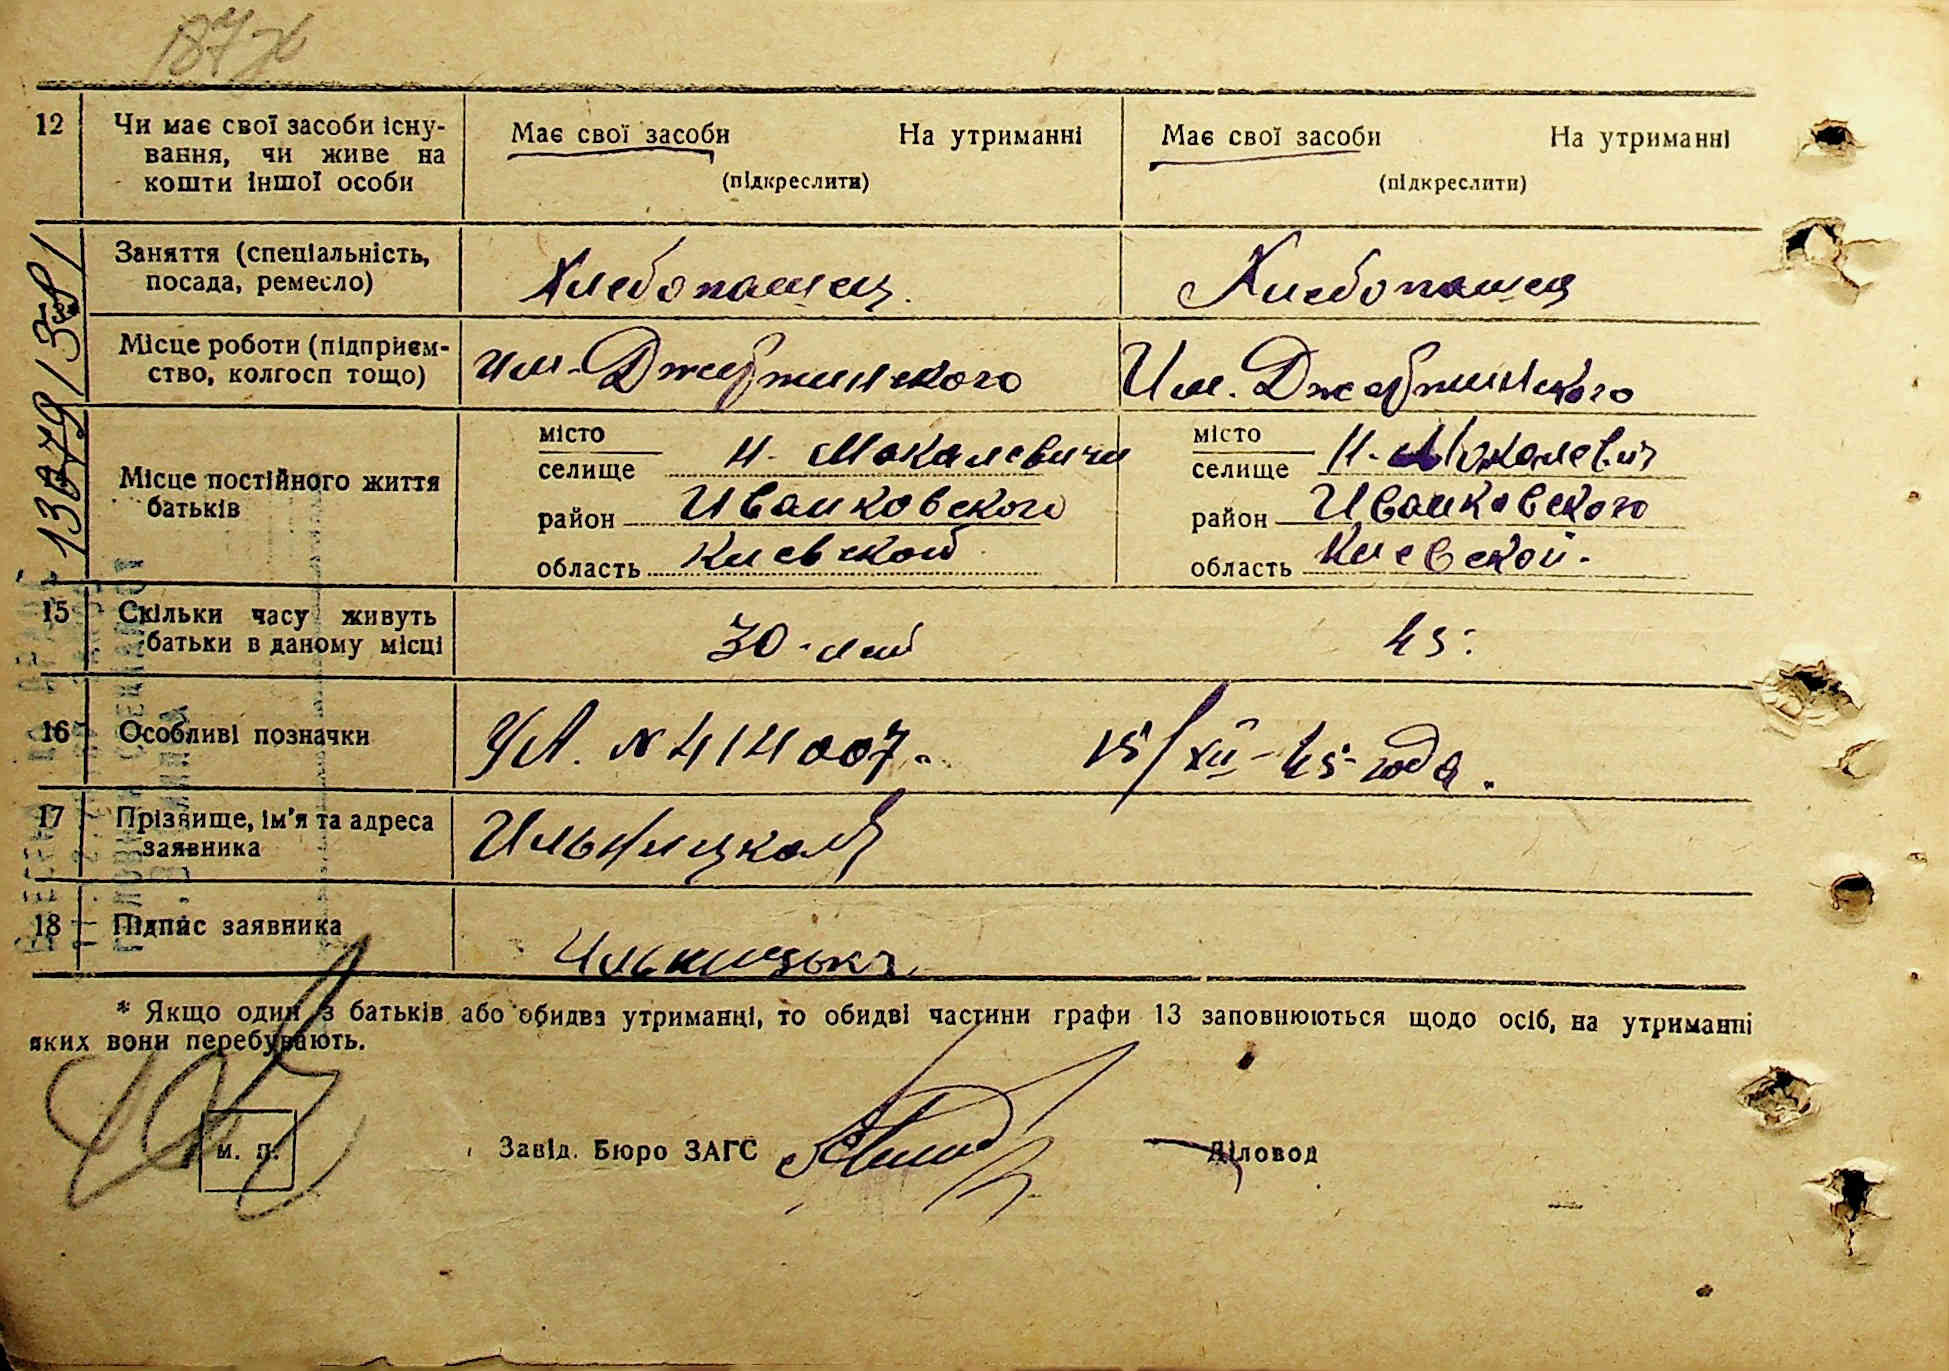 187
12 Чи має свої засоби існу-
вання, чи живе на
кошти іншої особи
Має свої засоби На утриманні
(підкреслити)
Має свої засоби На утриманні
(підкреслити)
Заняття (спеціальність,
посада, ремесло)
Хлебопашец.
Хлебопашец
Місце роботи (підприєм-
ство, колгосп тощо)
Им. Джержинского
Им. Джержинского
Місце постійного життя
батьків
місто
селище Н. Макалевичи
район Иванковского
область Киевской
місто
селище Н. Макалевич
район Иванковского
область Киевской.
15 Скільки часу живуть
батьки в даному місці
30-лет
45.
16 Особливі позначки
УЛ. № 414007. 15/XII-45 года.
17 Прізвище, ім'я та адреса
заявника
18 Підпис заявника
* Якщо один з батьків або обидва утриманці, то обидві частини графи 13 заповнюються щодо осіб, на утриманні
яких вони перебувають.
м. п.
Завід. Бюро ЗАГС
Діловод